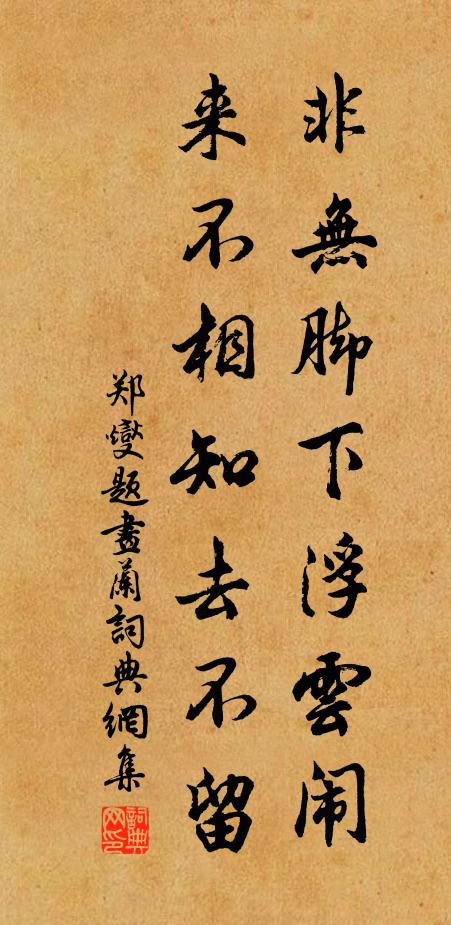 非無脚下浮雲闹
来不相知去不留
郑燮題畫蘭詞典網集
詞典網印